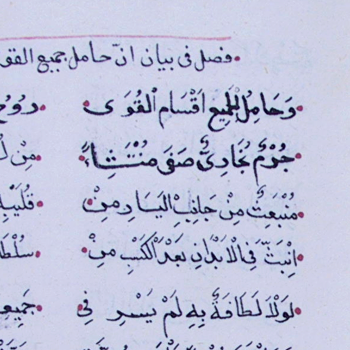 فصل فى بيان انّ حامل جميع القو
وَحَامِلُ لِجَمِيعِ اَقْسَامِ الْقُوَى رُوْحٌ
جِرْمٌ بُخَارِىٌّ صَفَى مُنْتَشِاً مِنْ
مُنْبَعِثٌ مِنْ جَانِبِ الْيَسَارِ مِنْ
اِنْبَثَّ فِى الْاَبْدَانِ بَعْدَ الْكَبْتِ مِنْ سُلْطَا
لَوْلَا لَطَافَةٌ بِهِ لَمْ يَسْرِ فِي جَمِيعِ